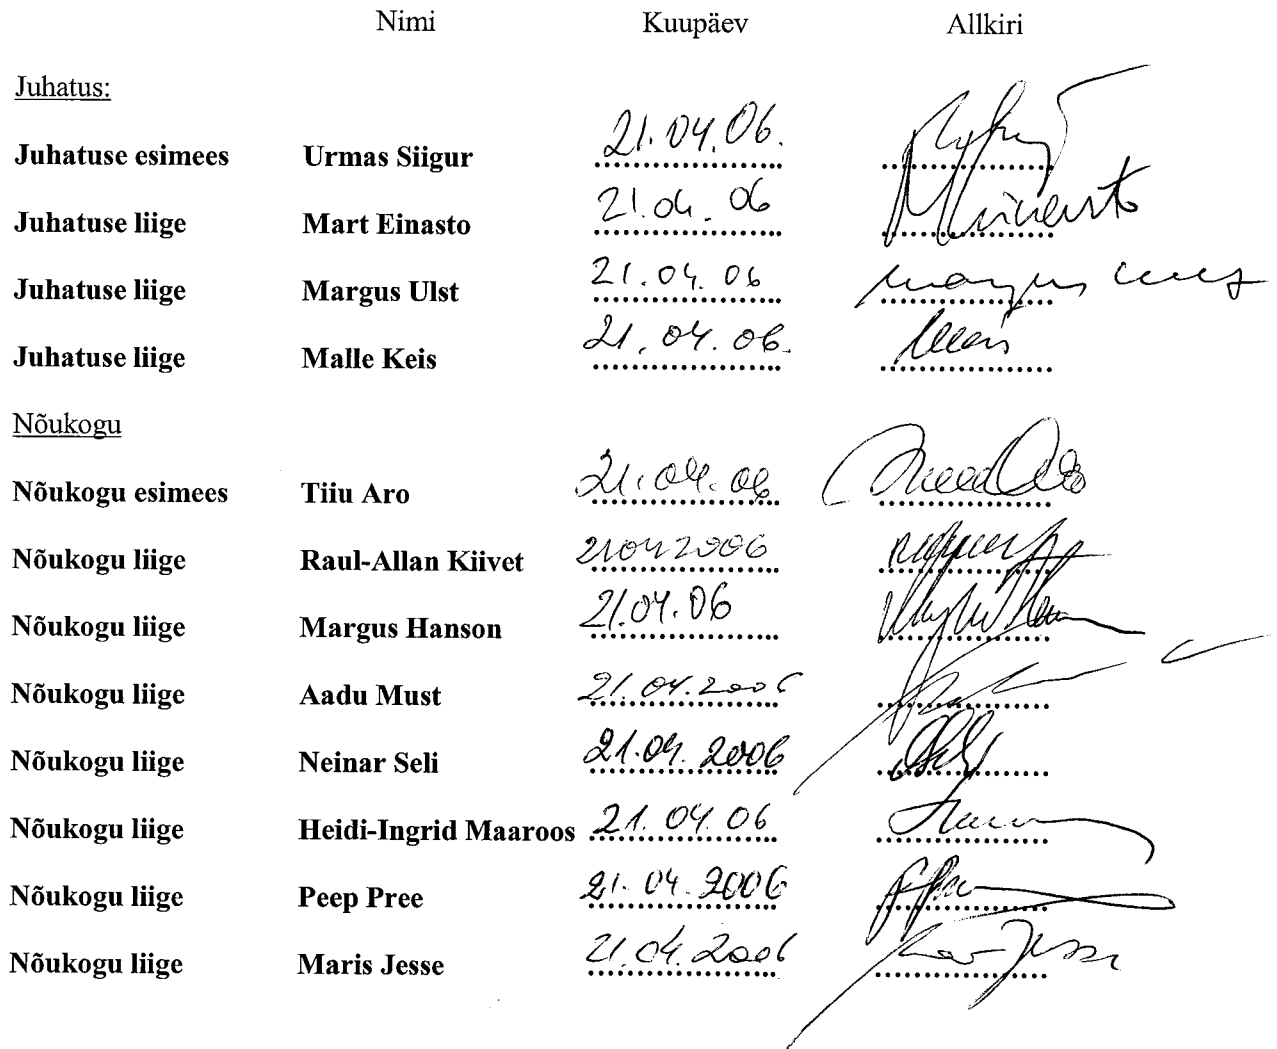 Nimi Kuupäev Allkiri
Juhatus:
Juhatuse esimees Urmas Siigur 21.04.06.
Juhatuse liige Mart Einasto 21.04.06 MEinasto
Juhatuse liige Margus Ulst 21.04.06 Margus Ulst
Juhatuse liige Malle Keis 21.04.06.
Nõukogu
Nõukogu esimees Tiiu Aro 21.04.06
Nõukogu liige Raul-Allan Kiivet 21042006
Nõukogu liige Margus Hanson 21.04.06
Nõukogu liige Aadu Must 21.04.2006
Nõukogu liige Neinar Seli 21.04.2006
Nõukogu liige Heidi-Ingrid Maaroos 21.04.06
Nõukogu liige Peep Pree 21.04.2006
Nõukogu liige Maris Jesse 21.04.2006